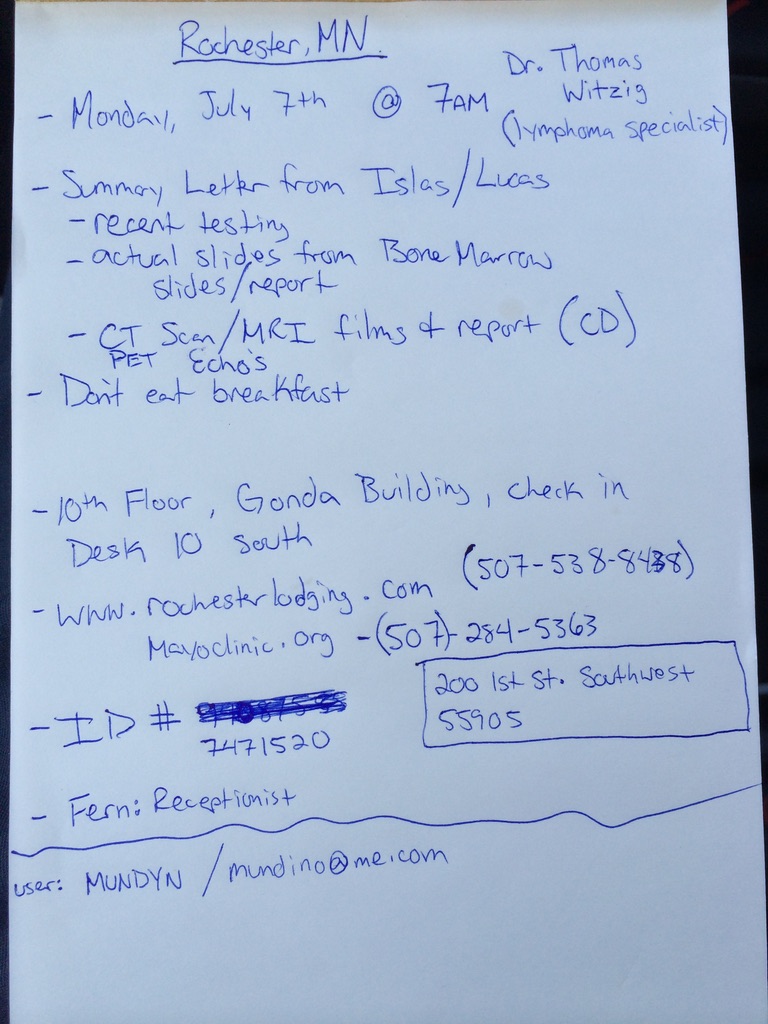 Rochester, MN.
Dr. Thomas
Witzig
(lymphoma specialist)
- Monday, July 7th @ 7AM
- Summary Letter from Islas/Lucas
- recent testing
- actual slides from Bone Marrow
slides/report
- CT Scan/MRI films & report (CD)
PET Echo's
- Don't eat breakfast
- 10th Floor, Gonda Building, check in
Desk 10 South
(507-538-8438)
- www.rochesterlodging.com
Mayoclinic.org - (507)-284-5363
200 1st St. Southwest
55905
- ID #
7471520
- Fern: Receptionist
user: MUNDYN / mundino@me.com